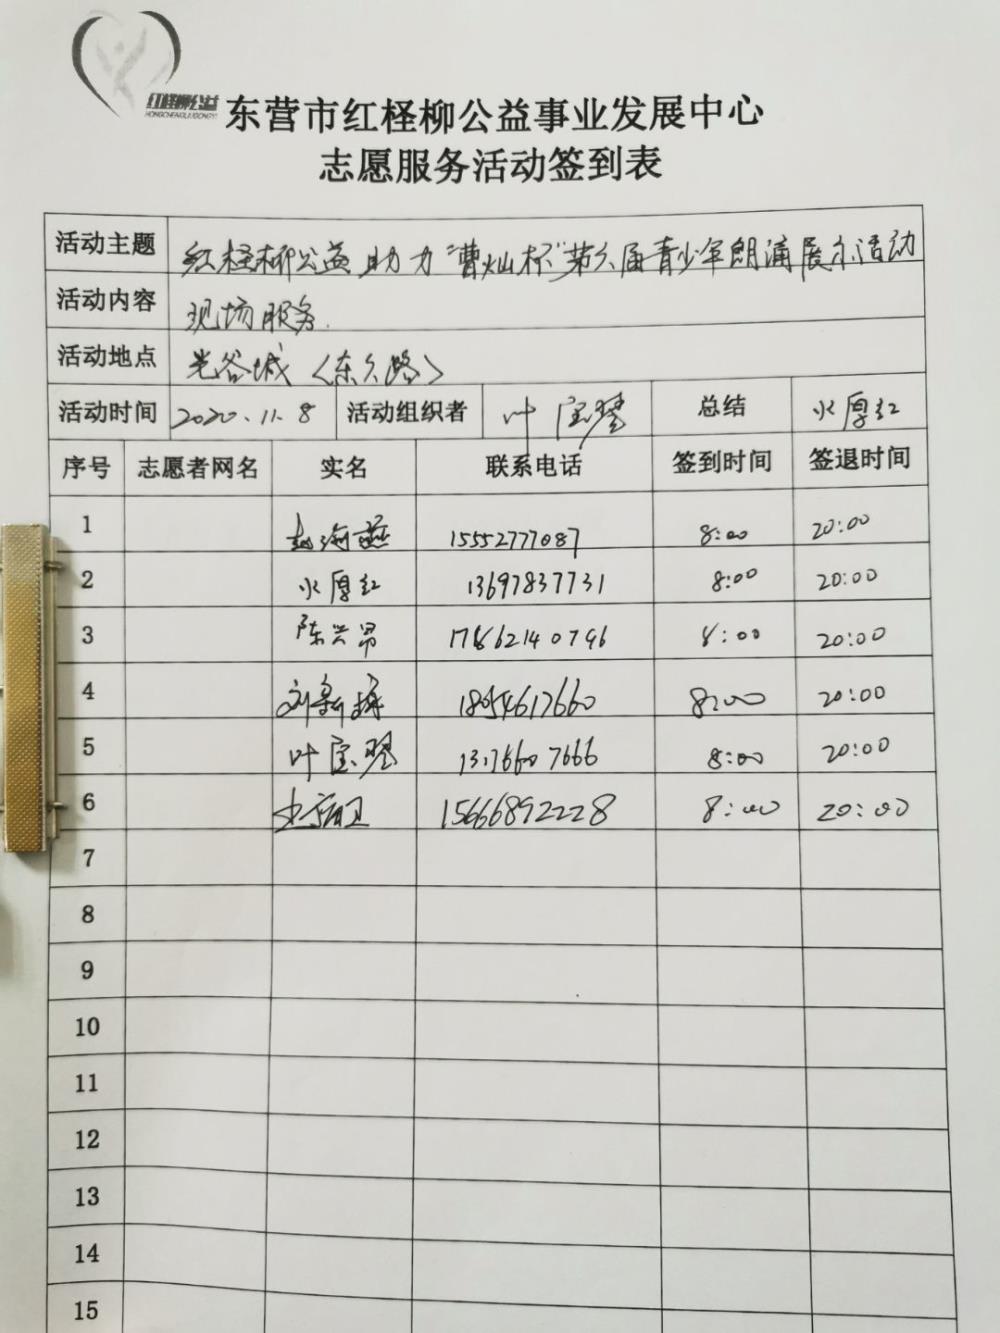 红柽柳公益
HONGCHENGLIUGONGYI
东营市红柽柳公益事业发展中心
志愿服务活动签到表
活动主题 红柽柳公益助力"曹灿杯"第六届青少年朗诵展示活动
活动内容 现场服务.
活动地点 光谷城(东久路)
活动时间 2020.11.8 活动组织者 叶宝琴 总结 火厚红
序号 志愿者网名 实名 联系电话 签到时间 签退时间
1 赵海燕 15552777087 8:00 20:00
2 火厚红 13697837731 8:00 20:00
3 陈兴昂 17862140796 8:00 20:00
4 刘新 18054617660 8:00 20:00
5 叶宝琴 13176607666 8:00 20:00
6 15666892228 8:00 20:00
7
8
9
10
11
12
13
14
15